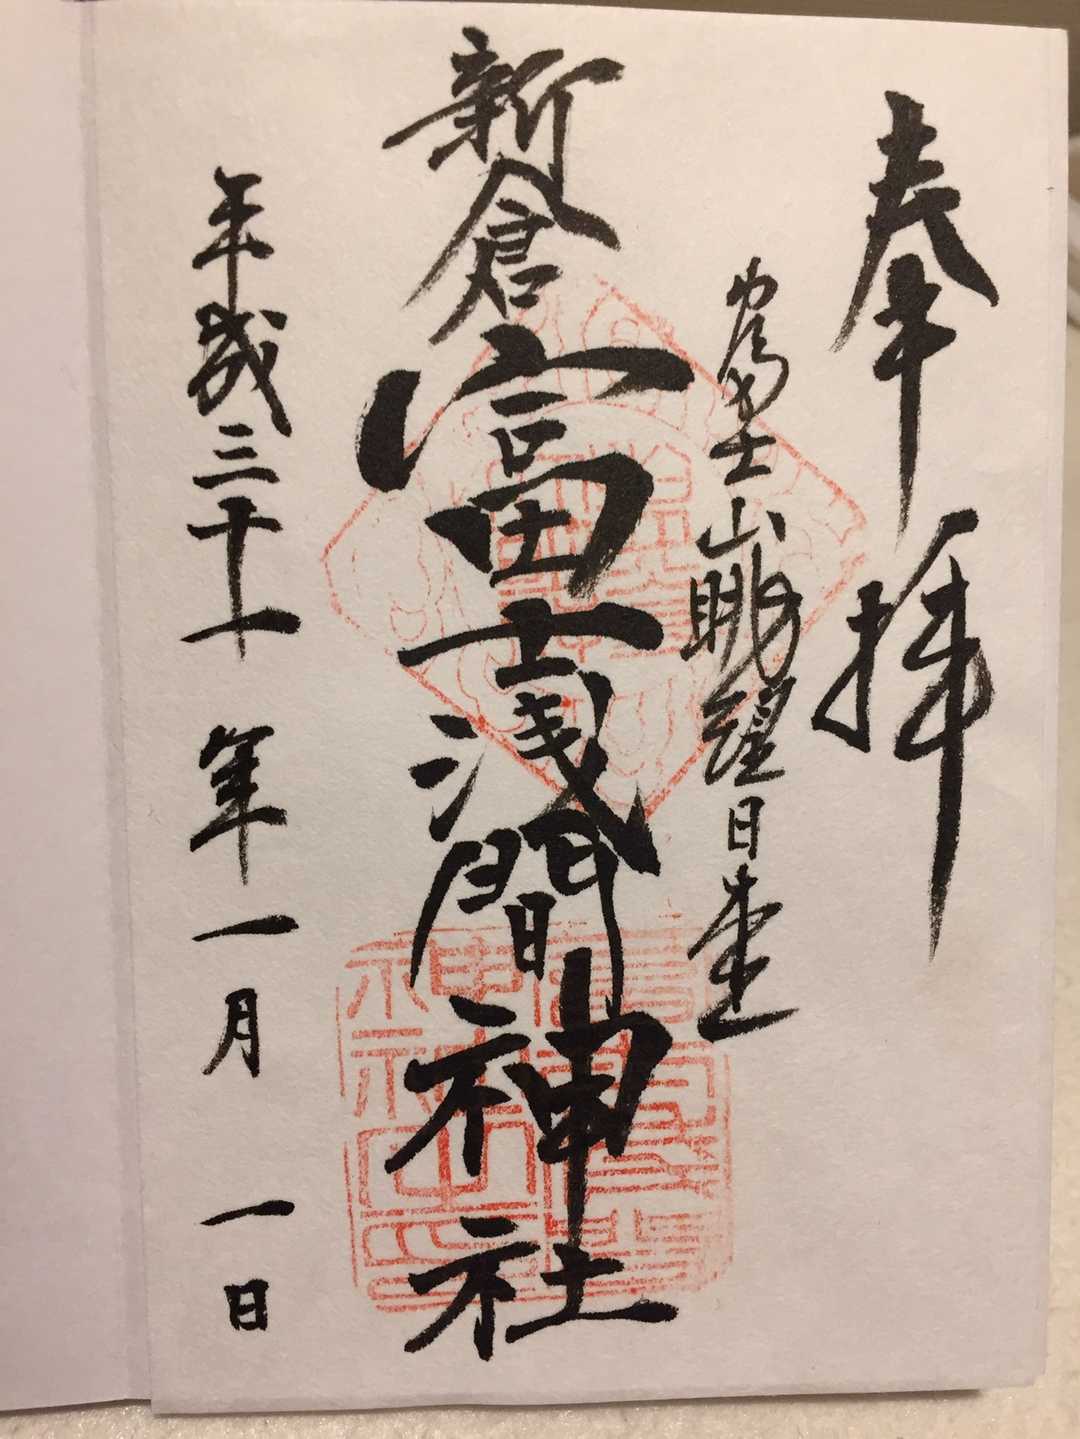 奉拝
富士山眺望日本一
新倉富士浅間神社
平成三十一年一月一日